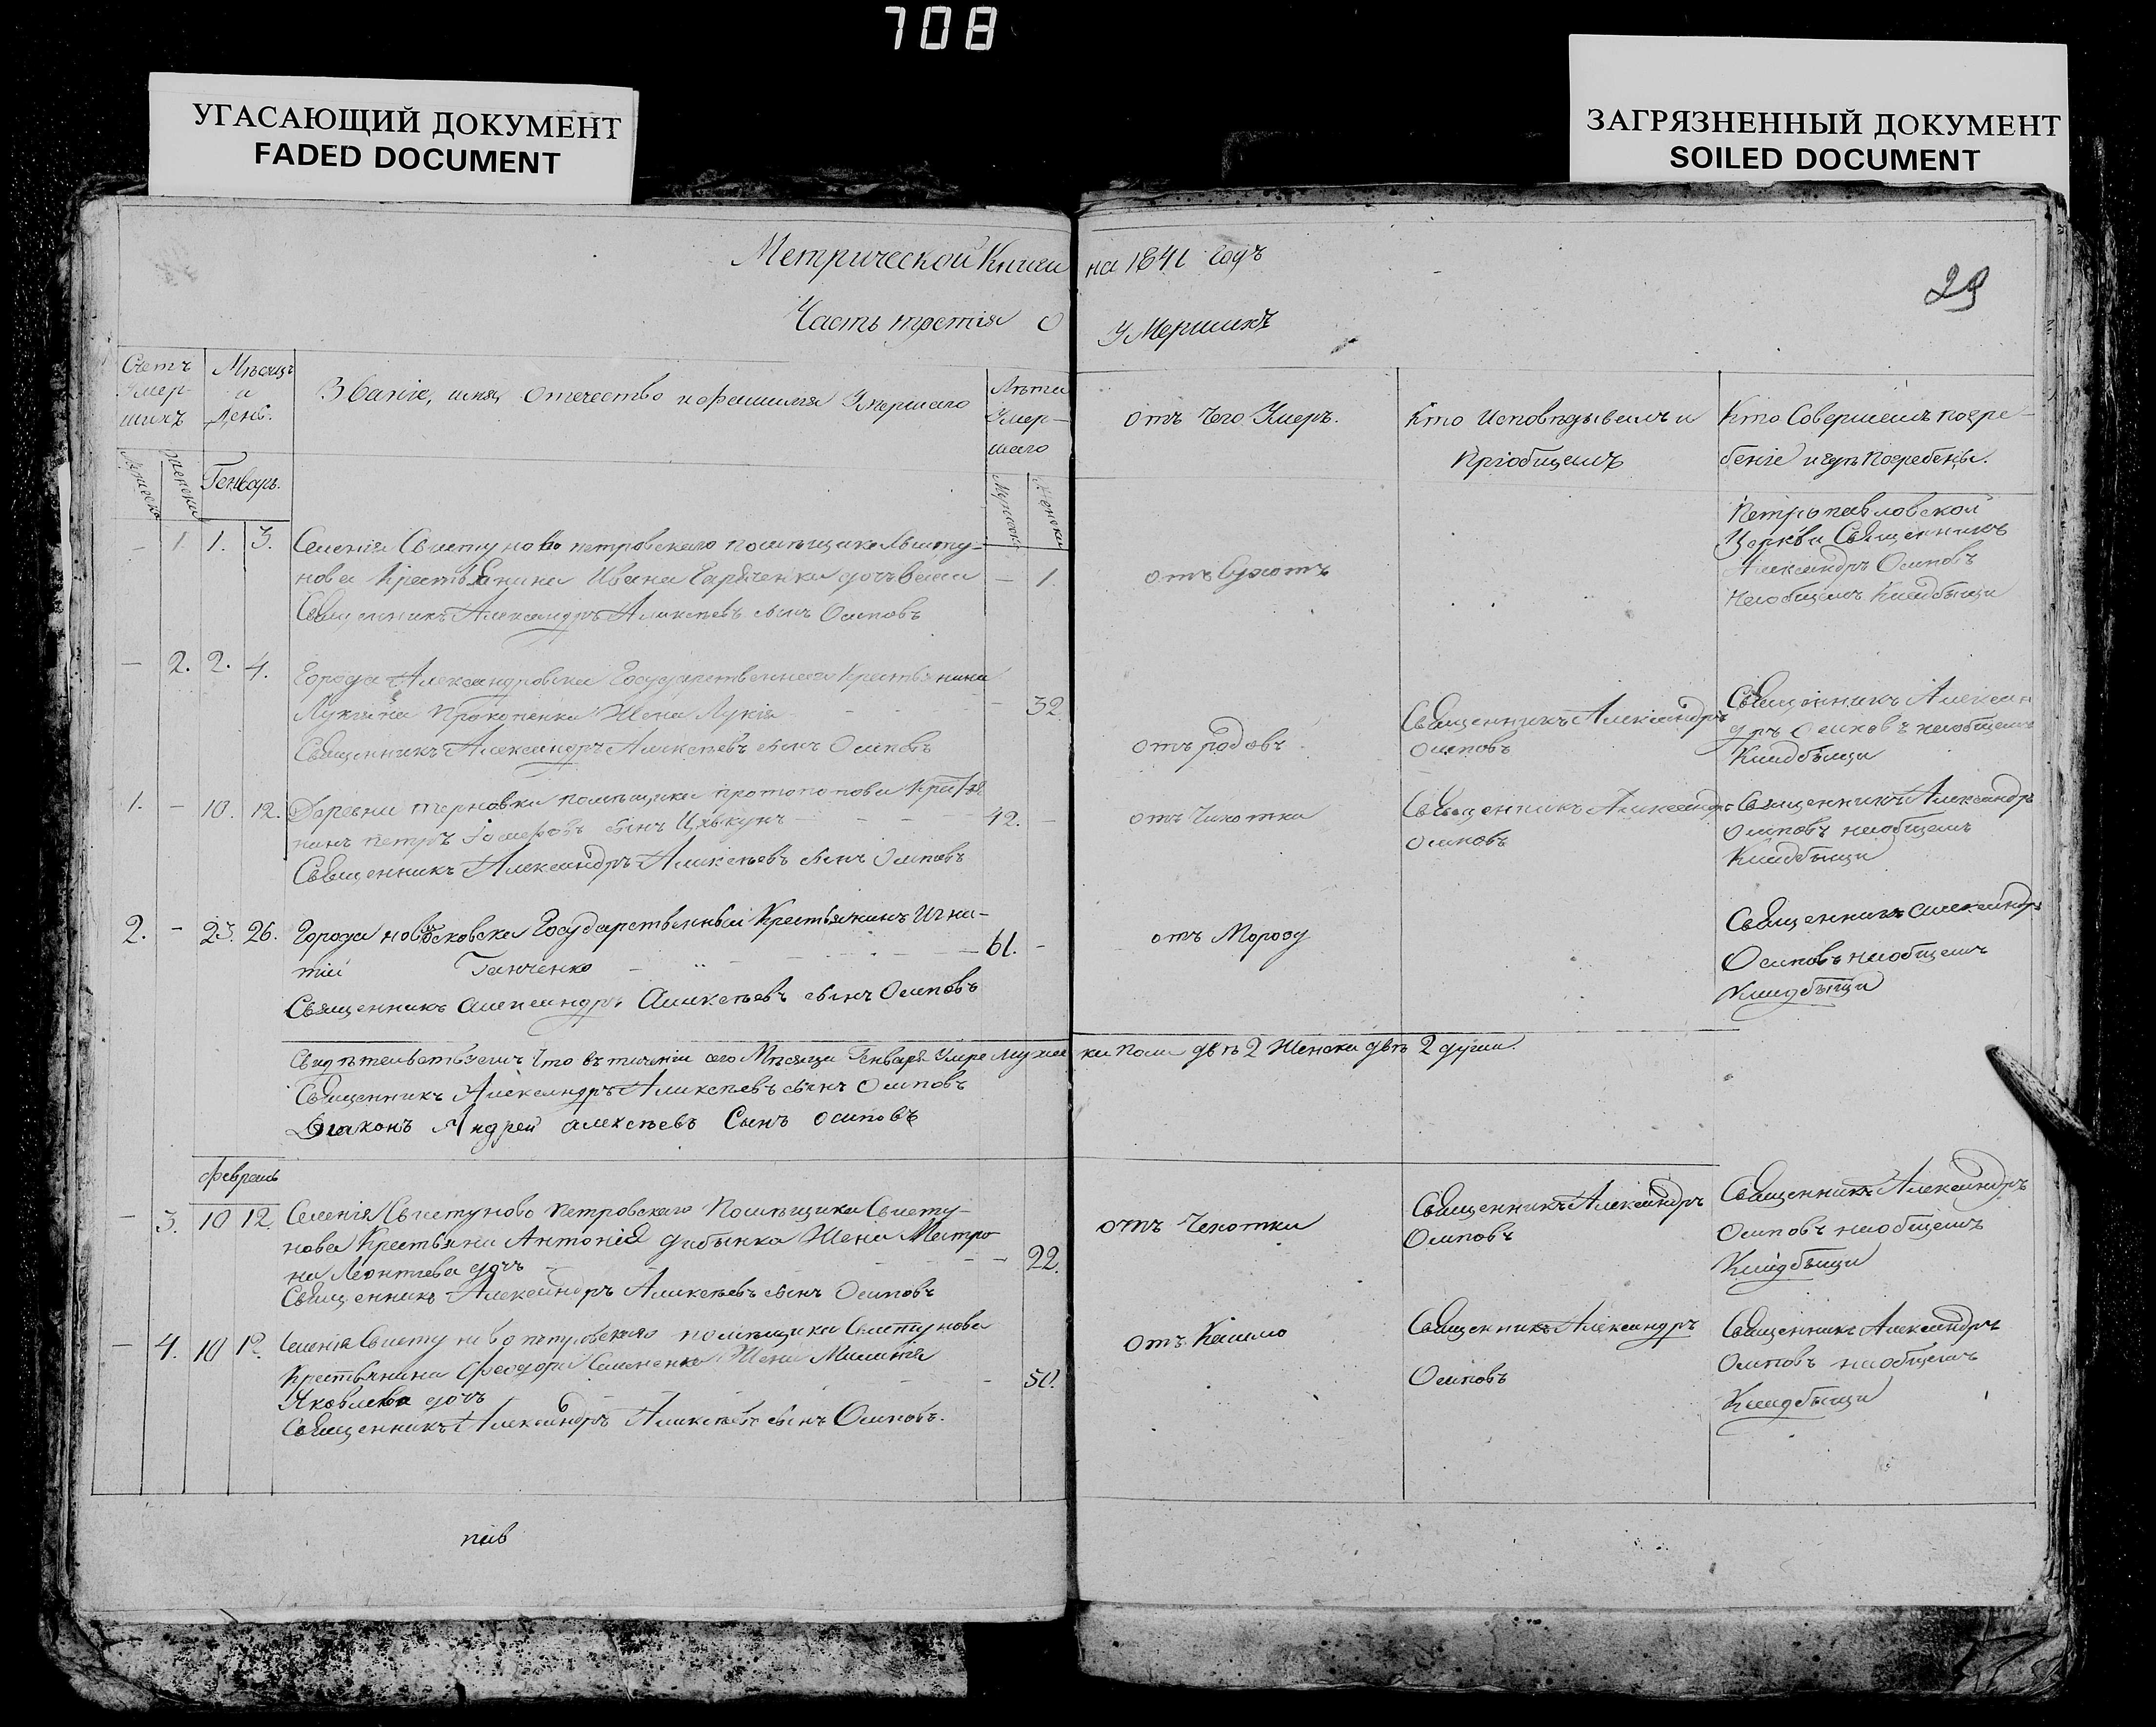 708
УГАСАЮЩИЙ ДОКУМЕНТ
FADED DOCUMENT
ЗАГРЯЗНЕННЫЙ ДОКУМЕНТ
SOILED DOCUMENT
Метрической Книги на 1841 годъ
29
Часть третія о умершихъ
Счетъ умер-шихъ
Мѣсяцъ и день.
Званіе, имя, отечество и фамилія умершаго
Лѣта умер-шаго
отъ чего умеръ.
Кто исповѣдывалъ и пріобщалъ
Кто совершалъ погре-
беніе и гдѣ погребены.
Мужеска
Женска
Генварь.
Мужеска
Женска
– 1. 1. 3. Селенія Свистуново петровскаго помѣщика Свисту-
нова крестьянина Ивана дочь – 1.
Священникъ Александръ Алексѣевъ сынъ Осиповъ
Петропавловской
Церкви Священникъ
Александръ Осиповъ
на общемъ кладбищи
– 2. 2. 4. Города Александровска Государственнаго крестьянина
Прокопенка жена Лукія – 32.
Священникъ Александръ Алексѣевъ сынъ Осиповъ
отъ родовъ
Священникъ Александръ
Осиповъ
Священникъ Алексан
дръ Осиповъ на общемъ
кладбищи
1. – 10. 12. Деревни терновки помѣщика протопопова крестья
нинъ петръ сынъ 42. –
Священникъ Александръ Алексѣевъ сынъ Осиповъ
отъ чихотки
Священникъ Александръ
Осиповъ
Священникъ Александръ
Осиповъ на общемъ
кладбищи
2. – 23. 26. Города новомосковска Государственный крестьянинъ Игна-
тій Ганченко – 61. –
Священникъ александръ Алексѣевъ сынъ Осиповъ
отъ Морозу
Священникъ александръ
Осиповъ на общемъ
кладбищи
Свидѣтельствуемъ что въ теченіи сего Мѣсяца Генваря умре мужес ка пола двѣ 2 Женска двѣ 2 души.
Священникъ Александръ Алексѣевъ сынъ Осиповъ
Діаконъ Андрей алексѣевъ Сынъ осиповъ
Февраль
– 3. 10 12 Селенія Свистуново петровскаго Помѣщика Свисту-
нова крестьяни Антонія жена Матро
на Леонтіева дочь – 22.
Священникъ Александръ Алексѣевъ сынъ Осиповъ
отъ чехотки
Священникъ Александръ
Осиповъ
Священникъ Александръ
Осиповъ на общемъ
кладбищи
– 4. 10 12. Селенія Свистуново петровскаго помѣщика Свистунова
крестьянина Феодора Семененка жена
Яковлева дочь – 50.
Священникъ Александръ Алексѣевъ сынъ Осиповъ.
отъ Кашлю
Священникъ Александръ
Осиповъ
Священникъ Александръ
Осиповъ на общемъ
кладбищи